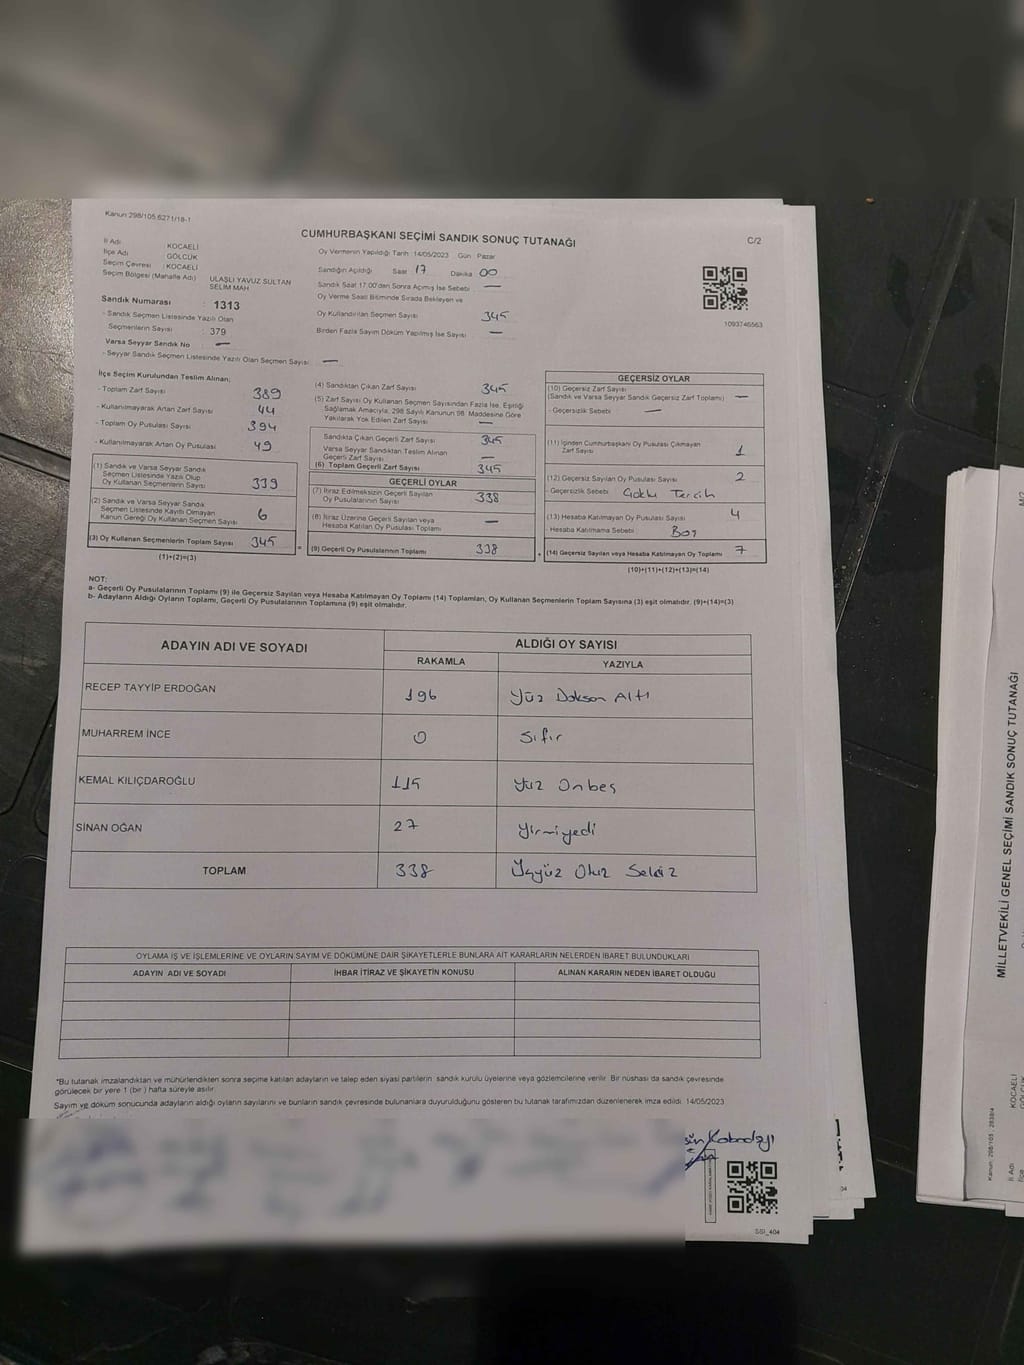 Kanun:298/105,6271/18-1
CUMHURBAŞKANI SEÇİMİ SANDIK SONUÇ TUTANAĞI
C/2
İl Adı : KOCAELİ
İlçe Adı : GÖLCÜK
Seçim Çevresi : KOCAELİ
Seçim Bölgesi (Mahalle Adı) : ULAŞLI YAVUZ SULTAN
SELİM MAH
Sandık Numarası : 1313
- Sandık Seçmen Listesinde Yazılı Olan
Seçmenlerin Sayısı : 379
Varsa Seyyar Sandık No : —
- Seyyar Sandık Seçmen Listesinde Yazılı Olan Seçmen Sayısı : —
Oy Vermenin Yapıldığı Tarih :14/05/2023 Gün : Pazar
Sandığın Açıldığı Saat : 17 Dakika : 00
Sandık Saat 17.00'den Sonra Açılmış İse Sebebi : —
Oy Verme Saati Bitiminde Sırada Bekleyen ve
Oy Kullandırılan Seçmen Sayısı : 345
Birden Fazla Sayım Döküm Yapılmış İse Sayısı : —
1093746563
İlçe Seçim Kurulundan Teslim Alınan;
- Toplam Zarf Sayısı : 389
- Kullanılmayarak Artan Zarf Sayısı : 44
- Toplam Oy Pusulası Sayısı : 394
- Kullanılmayarak Artan Oy Pusulası : 49
(1) Sandık ve Varsa Seyyar Sandık
Seçmen Listesinde Yazılı Olup
Oy Kullanan Seçmenlerin Sayısı : 339
(2) Sandık ve Varsa Seyyar Sandık
Seçmen Listesinde Kayıtlı Olmayan
Kanun Gereği Oy Kullanan Seçmen Sayısı : 6
(3) Oy Kullanan Seçmenlerin Toplam Sayısı : 345
(1)+(2)=(3)
(4) Sandıktan Çıkan Zarf Sayısı : 345
(5) Zarf Sayısı Oy Kullanan Seçmen Sayısından Fazla İse, Eşitliği
Sağlamak Amacıyla, 298 Sayılı Kanunun 98. Maddesine Göre
Yakılarak Yok Edilen Zarf Sayısı : —
Sandıkta Çıkan Geçerli Zarf Sayısı : 345
Varsa Seyyar Sandıktan Teslim Alınan
Geçerli Zarf Sayısı : —
(6) Toplam Geçerli Zarf Sayısı : 345
GEÇERLİ OYLAR
(7) İtiraz Edilmeksizin Geçerli Sayılan
Oy Pusulalarının Sayısı : 338
(8) İtiraz Üzerine Geçerli Sayılan veya
Hesaba Katılan Oy Pusulası Toplamı : —
(9) Geçerli Oy Pusulalarının Toplamı : 338
GEÇERSİZ OYLAR
(10) Geçersiz Zarf Sayısı
(Sandık ve Varsa Seyyar Sandık Geçersiz Zarf Toplamı) : —
- Geçersizlik Sebebi : —
(11) İçinden Cumhurbaşkanı Oy Pusulası Çıkmayan
Zarf Sayısı : 1
(12) Geçersiz Sayılan Oy Pusulası Sayısı : 2
- Geçersizlik Sebebi : Çoklu Tercih
(13) Hesaba Katılmayan Oy Pusulası Sayısı : 4
- Hesaba Katılmama Sebebi : Boş
(14) Geçersiz Sayılan veya Hesaba Katılmayan Oy Toplamı : 7
(10)+(11)+(12)+(13)=(14)
NOT:
a- Geçerli Oy Pusulalarının Toplamı (9) ile Geçersiz Sayılan veya Hesaba Katılmayan Oy Toplamı (14) Toplamları, Oy Kullanan Seçmenlerin Toplam Sayısına (3) eşit olmalıdır. (9)+(14)=(3)
b- Adayların Aldığı Oyların Toplamı, Geçerli Oy Pusulalarının Toplamına (9) eşit olmalıdır.
ADAYIN ADI VE SOYADI
ALDIĞI OY SAYISI
RAKAMLA YAZIYLA
RECEP TAYYİP ERDOĞAN 196 Yüz Doksan Altı
MUHARREM İNCE 0 Sıfır
KEMAL KILIÇDAROĞLU 115 Yüz Onbeş
SİNAN OĞAN 27 Yirmiyedi
TOPLAM 338 Üçyüz Otuz Sekiz
OYLAMA İŞ VE İŞLEMLERİNE VE OYLARIN SAYIM VE DÖKÜMÜNE DAİR ŞİKAYETLERLE BUNLARA AİT KARARLARIN NELERDEN İBARET BULUNDUKLARI
ADAYIN ADI VE SOYADI İHBAR İTİRAZ VE ŞİKAYETİN KONUSU ALINAN KARARIN NEDEN İBARET OLDUĞU
*Bu tutanak imzalandıktan ve mühürlendikten sonra seçime katılan adayların ve talep eden siyasi partilerin sandık kurulu üyelerine veya gözlemcilerine verilir. Bir nüshası da sandık çevresinde
görülecek bir yere 1 (bir ) hafta süreyle asılır.
Sayım ve döküm sonucunda adayların aldığı oyların sayılarını ve bunların sandık çevresinde bulunanlara duyurulduğunu gösteren bu tutanak tarafımızdan düzenlenerek imza edildi. 14/05/2023
SSİ_404
MİLLETVEKİLİ GENEL SEÇİMİ SANDIK SONUÇ TUTANAĞI
Kanun: 298/105 ; 2839/4
İl Adı KOCAELİ
İlçe GÖLCÜK